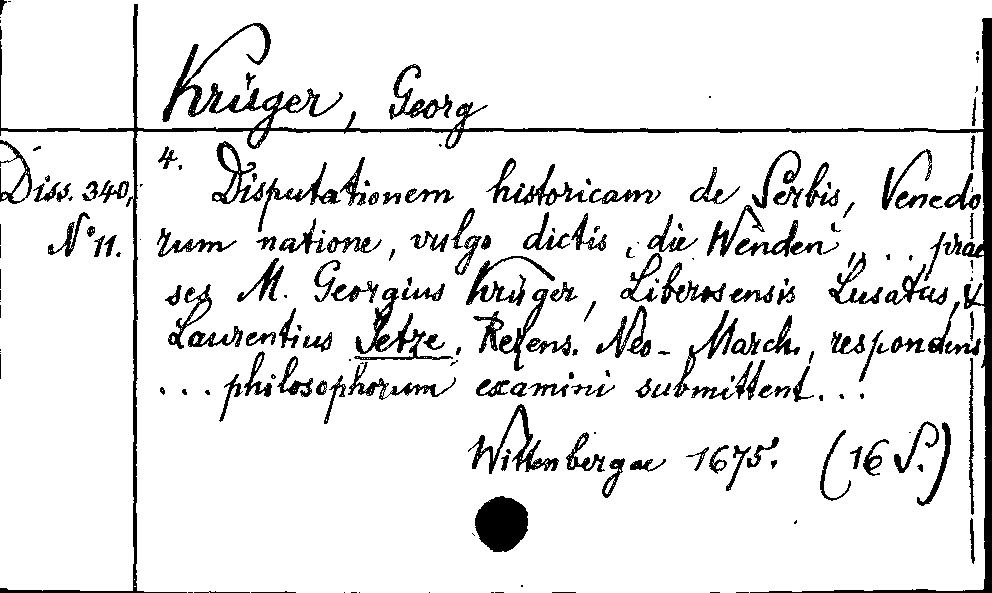 Krüger, Georg
Diss. 340,
N° 11.
4. Disputationem historicam de Serbis, Venedo
rum natione, vulgo dictis, die Wenden, ... prae
ses M. Georgius Krüger, Liberosensis Lusatus, &
Laurentius Jetze, Rezens. Neo-March., respondens,
... philosophorum examini submittent...
Wittenbergae 1675. (16 S.)